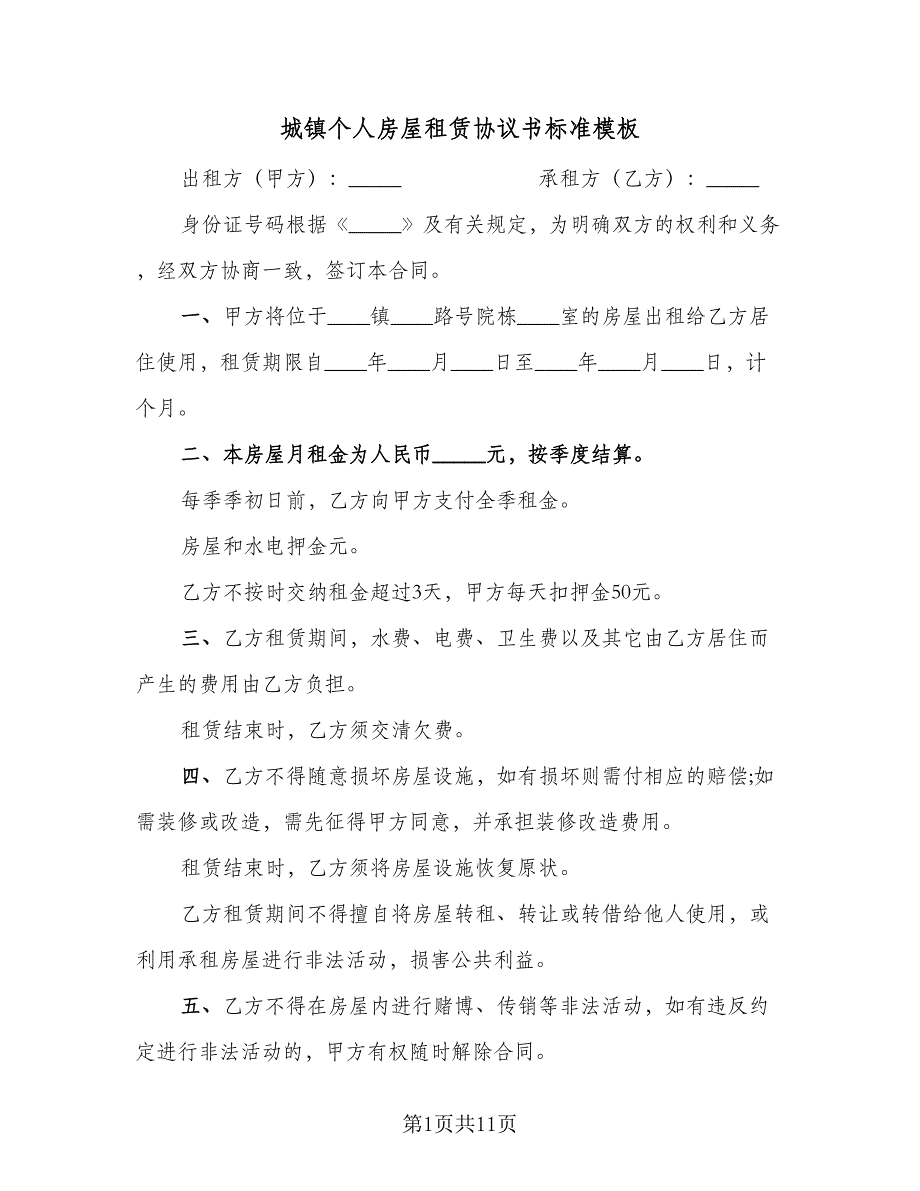 城镇个人房屋租赁协议书标准模板
出租方（甲方）：_____ 承租方（乙方）：_____
身份证号码根据《_____》及有关规定，为明确双方的权利和义务
，经双方协商一致，签订本合同。
一、甲方将位于____镇____路号院栋____室的房屋出租给乙方居
住使用，租赁期限自____年____月____日至____年____月____日，计
个月。
二、本房屋月租金为人民币_____元，按季度结算。
每季季初日前，乙方向甲方支付全季租金。
房屋和水电押金元。
乙方不按时交纳租金超过3天，甲方每天扣押金50元。
三、乙方租赁期间，水费、电费、卫生费以及其它由乙方居住而
产生的费用由乙方负担。
租赁结束时，乙方须交清欠费。
四、乙方不得随意损坏房屋设施，如有损坏则需付相应的赔偿;如
需装修或改造，需先征得甲方同意，并承担装修改造费用。
租赁结束时，乙方须将房屋设施恢复原状。
乙方租赁期间不得擅自将房屋转租、转让或转借给他人使用，或
利用承租房屋进行非法活动，损害公共利益。
五、乙方不得在房屋内进行赌博、传销等非法活动，如有违反约
定进行非法活动的，甲方有权随时解除合同。
第1页共11页